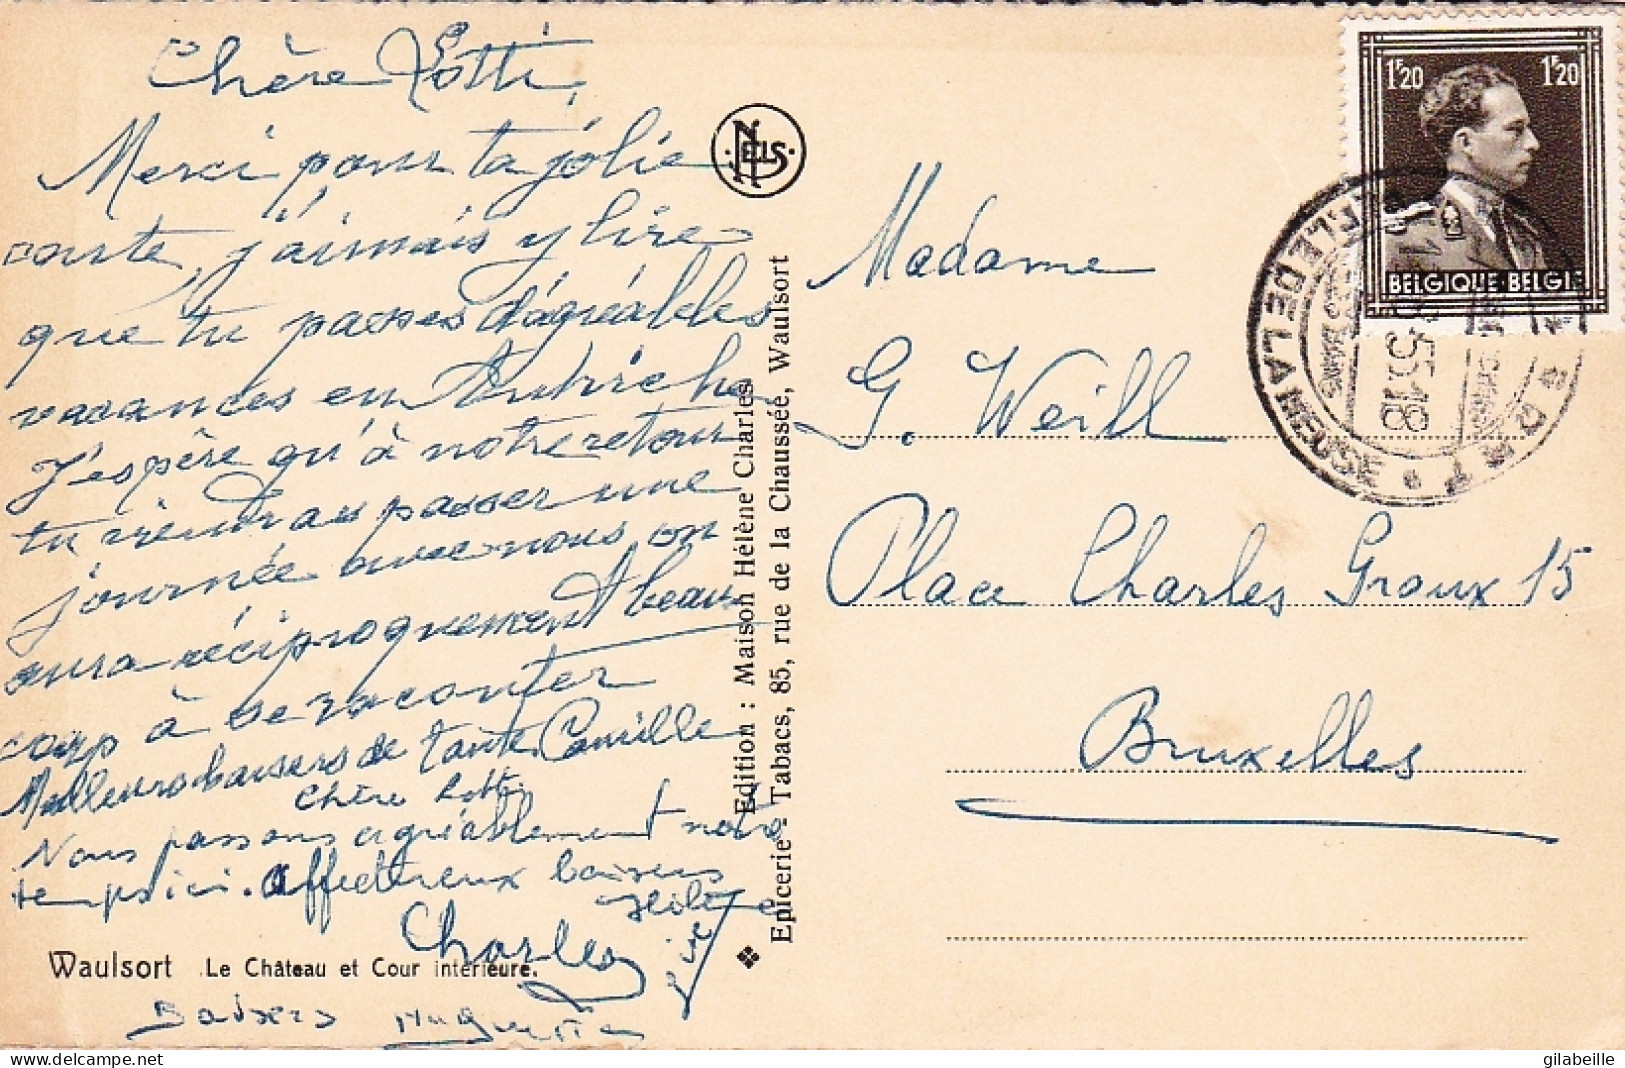 Chère Lotti,
Merci pour ta jolie
carte, j'aimais y lire
que tu passes d'agréables
vacances en Autriche
J'espère qu'à notre retour
tu viendras passer une
journée avec nous on
aura réciproquement beau
coup à se raconter
Meilleurs baisers de tante Camille
Chère Lotti
Nous passons agréablement notre
temps ici. Affectueux baisers
Hélène
Charles
Waulsort Le Château et Cour intérieure.
Baisers Huguette
NELS
Edition : Maison Hélène Charles
Epicerie - Tabacs, 85, rue de la Chaussée, Waulsort
Madame
G. Weill
Place Charles Graux 15
Bruxelles
1F20 1F20
BELGIQUE-BELGIE
DE LA MEUSE
55.18
gilabeille